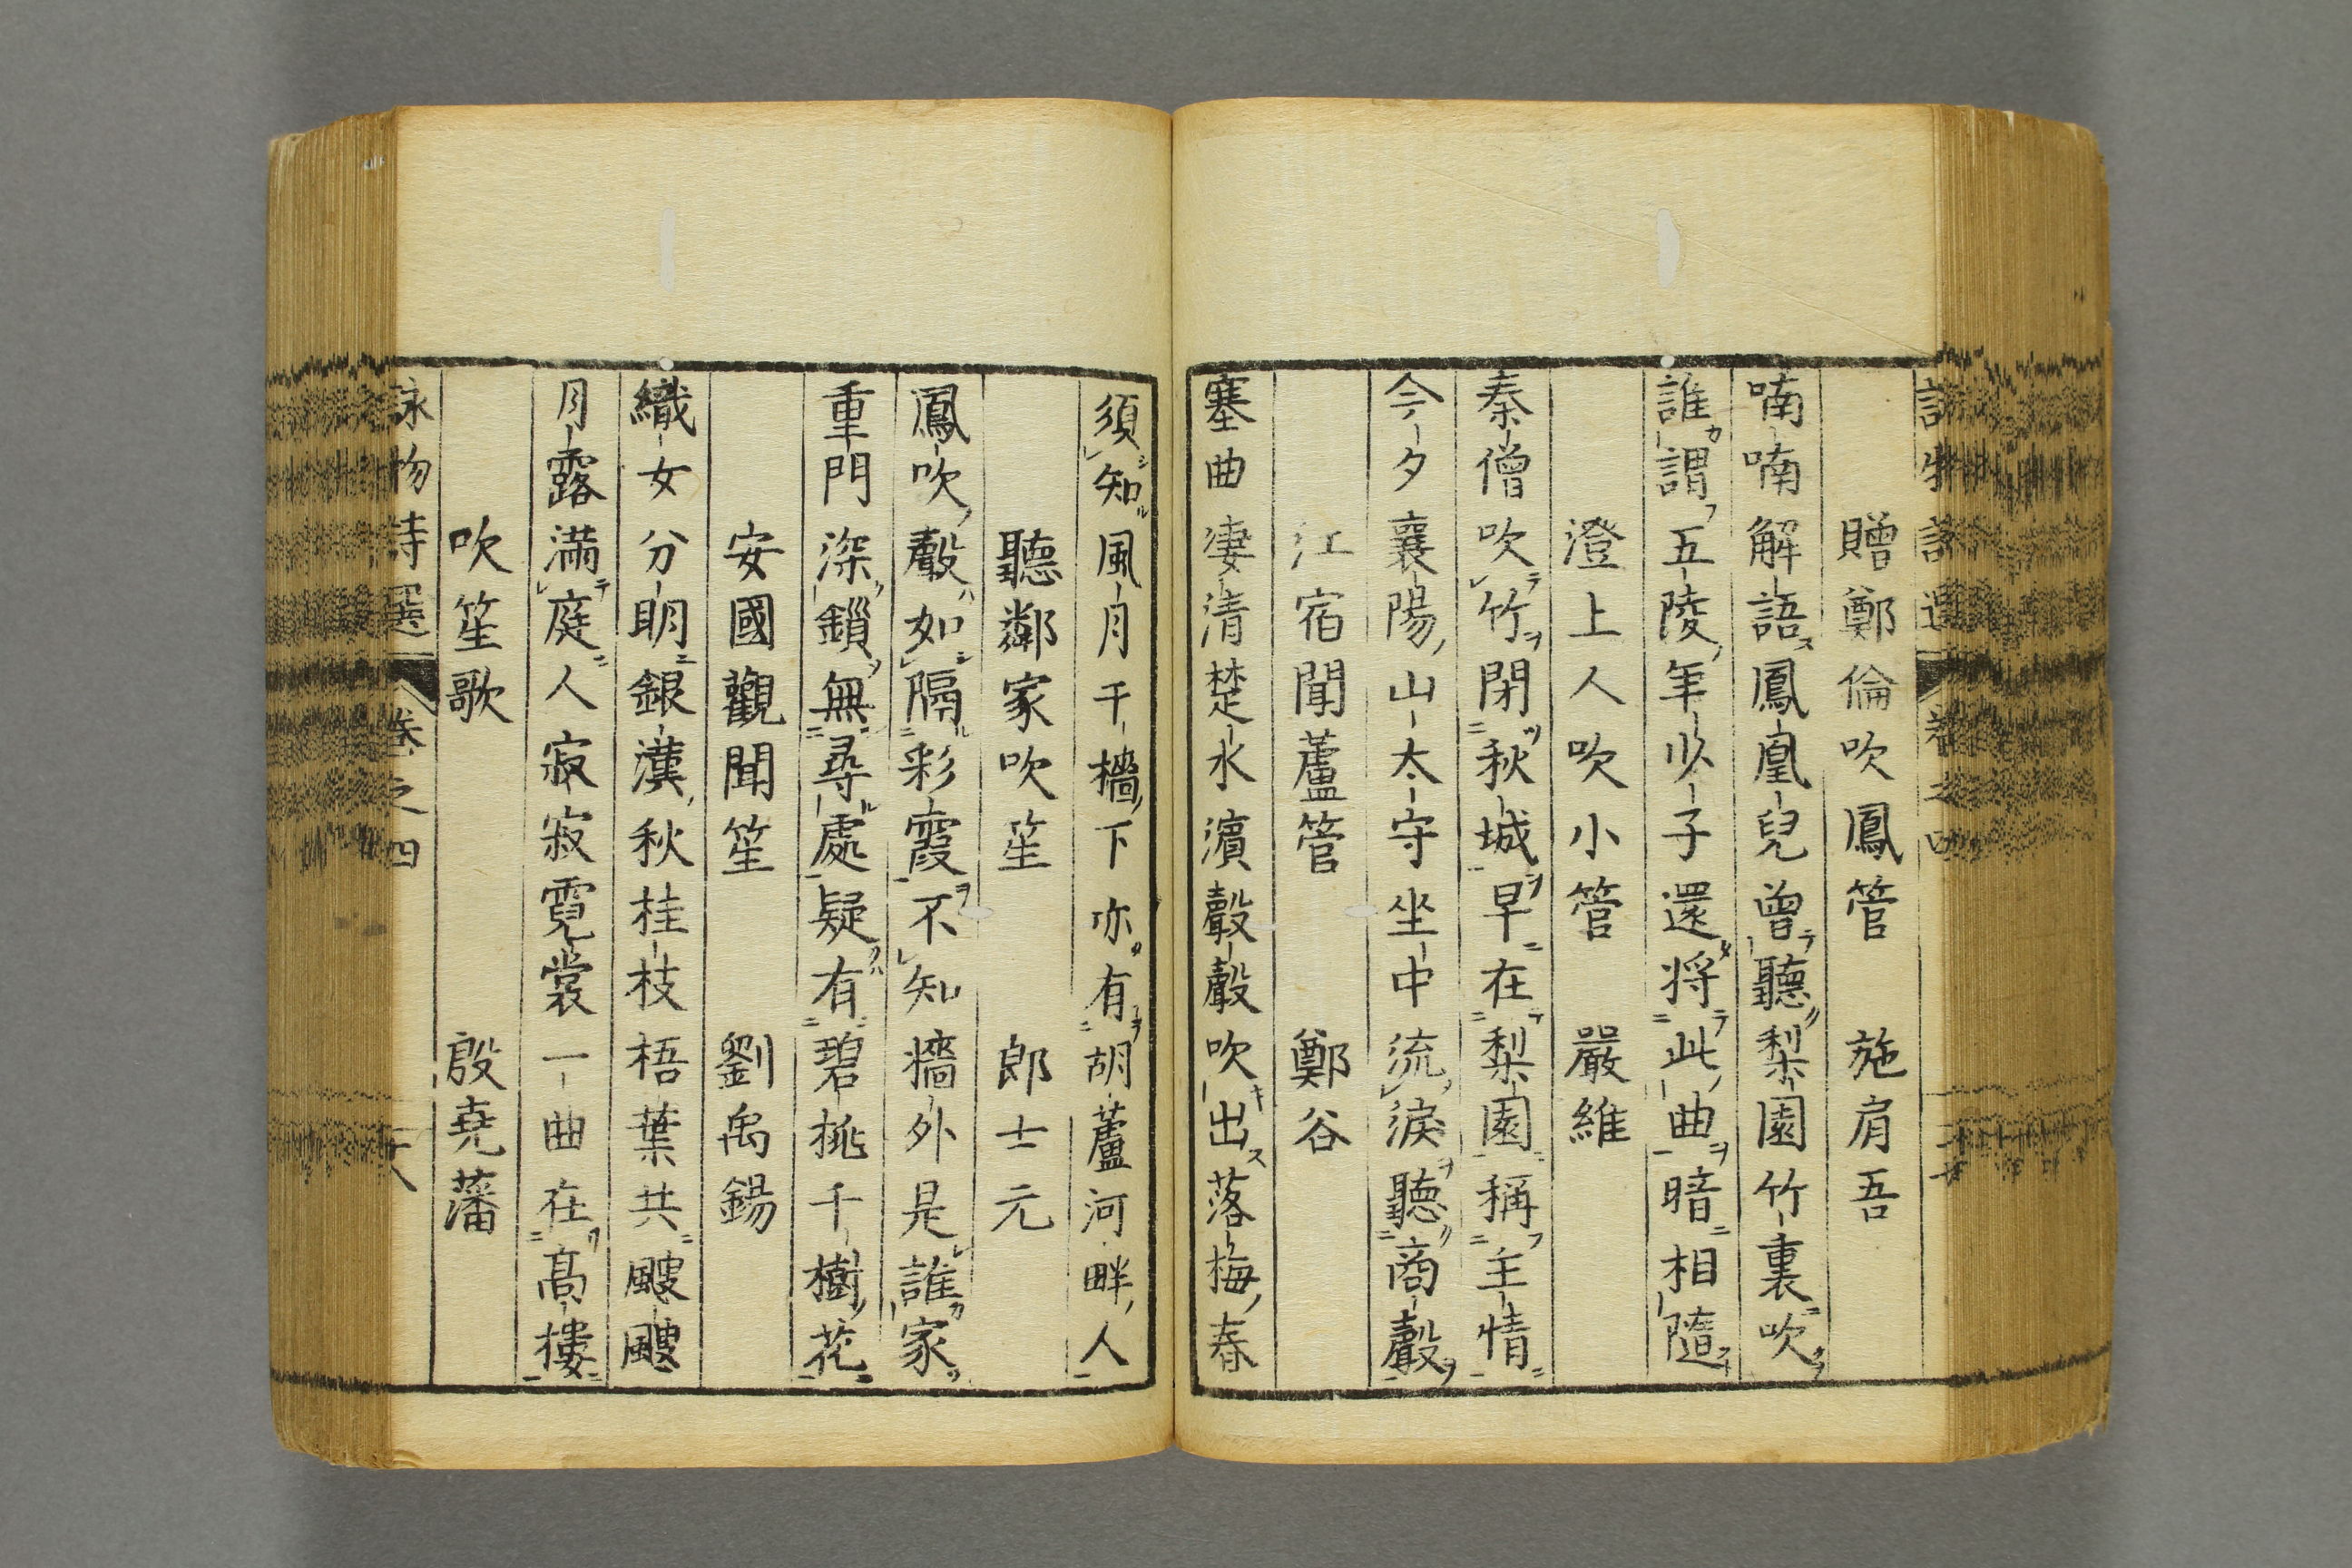 贈鄭倫吹鳳管　施肩吾
喃喃解語鳳凰兒曽聽梨園竹裏吹
誰謂五陵年少子還将此曲暗相隨
澄上人吹小管　嚴維
秦僧吹竹閉秋城早在梨園稱主情
今夕襄陽山太守坐中流淚聽商聲
江宿聞蘆管　鄭谷
塞曲凄清楚水濱聲聲吹出落梅春
須知風月千檣下亦有胡蘆河畔人
聽鄰家吹笙　郎士元
鳳吹聲如隔彩霞不知牆外是誰家
重門深鎖無尋處疑有碧桃千樹花
安國觀聞笙　劉禹錫
織女分明銀漢秋桂枝梧葉共颼颼
月露満庭人寂寂霓裳一曲在髙樓
吹笙歌　殷尭藩
詠物詩選　卷之四